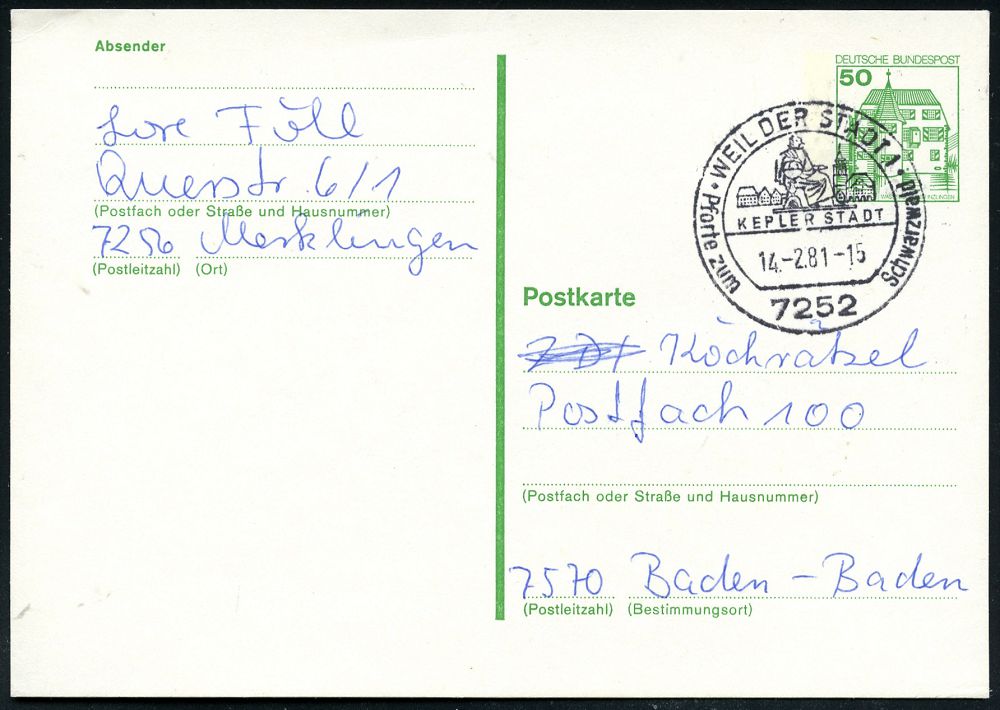 Absender
Lore Föll
Querstr. 6/1
(Postfach oder Straße und Hausnummer)
7256 Merklingen
(Postleitzahl) (Ort)
DEUTSCHE BUNDESPOST
50
WEIL DER STADT 1
Pforte zum Schwarzwald
KEPLERSTADT
14.-2.81-15
7252
Postkarte
Kochrätsel
Postfach 100
(Postfach oder Straße und Hausnummer)
7570 Baden-Baden
(Postleitzahl) (Bestimmungsort)